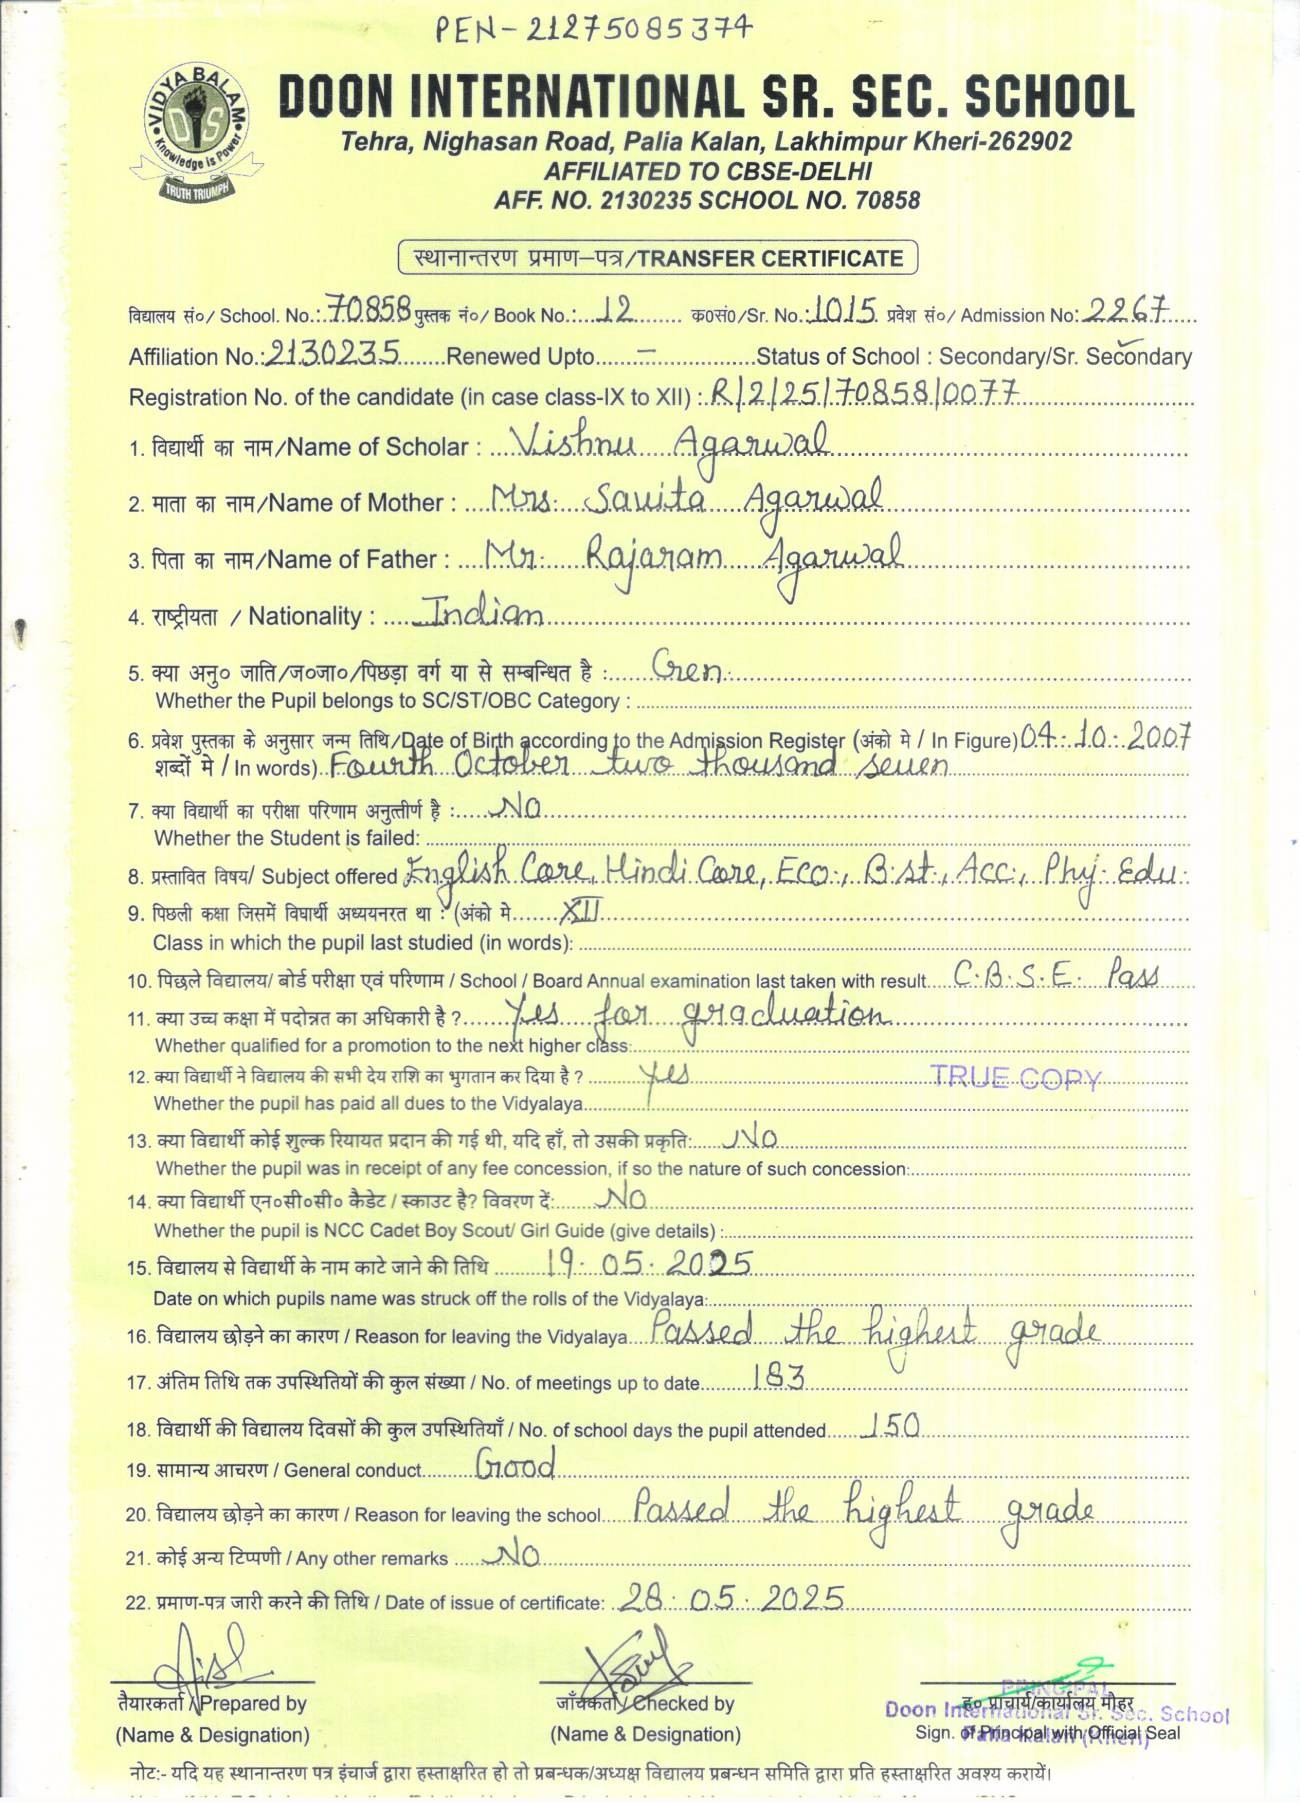 PEN-21275085374
VIDYA BALAM
DIS
Knowledge is Power
TRUTH TRIUMPH
DOON INTERNATIONAL SR. SEC. SCHOOL
Tehra, Nighasan Road, Palia Kalan, Lakhimpur Kheri-262902
AFFILIATED TO CBSE-DELHI
AFF. NO. 2130235 SCHOOL NO. 70858
स्थानान्तरण प्रमाण–पत्र/TRANSFER CERTIFICATE
विद्यालय सं०/ School. No.: 70858 पुस्तक नं०/ Book No.: 12 क०सं०/Sr. No.: 1015 प्रवेश सं०/ Admission No: 2267
Affiliation No.: 2130235 Renewed Upto – Status of School : Secondary/Sr. Secondary
Registration No. of the candidate (in case class-IX to XII) : R/2/25/70858/0077
1. विद्यार्थी का नाम/Name of Scholar : Vishnu Agarwal
2. माता का नाम/Name of Mother : Mrs. Savita Agarwal
3. पिता का नाम/Name of Father : Mr. Rajaram Agarwal
4. राष्ट्रीयता / Nationality : Indian
5. क्या अनु० जाति/ज०जा०/पिछड़ा वर्ग या से सम्बन्धित है : Gen.
Whether the Pupil belongs to SC/ST/OBC Category :
6. प्रवेश पुस्तका के अनुसार जन्म तिथि/Date of Birth according to the Admission Register (अंको मे / In Figure) 04.10.2007
शब्दों मे / In words) Fourth October two thousand seven
7. क्या विद्यार्थी का परीक्षा परिणाम अनुत्तीर्ण है : No
Whether the Student is failed:
8. प्रस्तावित विषय/ Subject offered : English Core, Hindi Core, Eco., B.st., Acc., Phy. Edu.
9. पिछली कक्षा जिसमें विघार्थी अध्ययनरत था : (अंको मे XII
Class in which the pupil last studied (in words):
10. पिछले विद्यालय/ बोर्ड परीक्षा एवं परिणाम / School / Board Annual examination last taken with result C.B.S.E. Pass
11. क्या उच्च कक्षा में पदोन्नत का अधिकारी है ? Yes for graduation
Whether qualified for a promotion to the next higher class:
12. क्या विद्यार्थी ने विद्यालय की सभी देय राशि का भुगतान कर दिया है ? Yes TRUE COPY
Whether the pupil has paid all dues to the Vidyalaya
13. क्या विद्यार्थी कोई शुल्क रियायत प्रदान की गई थी, यदि हाँ, तो उसकी प्रकृति: No
Whether the pupil was in receipt of any fee concession, if so the nature of such concession:
14. क्या विद्यार्थी एन०सी०सी० कैडेट / स्काउट है? विवरण दें: No
Whether the pupil is NCC Cadet Boy Scout/ Girl Guide (give details) :
15. विद्यालय से विद्यार्थी के नाम काटे जाने की तिथि 19.05.2025
Date on which pupils name was struck off the rolls of the Vidyalaya:
16. विद्यालय छोड़ने का कारण / Reason for leaving the Vidyalaya Passed the highest grade
17. अंतिम तिथि तक उपस्थितियों की कुल संख्या / No. of meetings up to date 183
18. विद्यार्थी की विद्यालय दिवसों की कुल उपस्थितियाँ / No. of school days the pupil attended 150
19. सामान्य आचरण / General conduct Good
20. विद्यालय छोड़ने का कारण / Reason for leaving the school Passed the highest grade
21. कोई अन्य टिप्पणी / Any other remarks No
22. प्रमाण-पत्र जारी करने की तिथि / Date of issue of certificate: 28.05.2025
तैयारकर्ता / Prepared by
(Name & Designation)
जाँचकर्ता / Checked by
(Name & Designation)
PRINCIPAL
ह० प्राचार्य/कार्यालय मौहर
Doon International Sr. Sec. School
Sign. of Principal with Official Seal
Palia Kalan (Kheri)
नोटः- यदि यह स्थानान्तरण पत्र इंचार्ज द्वारा हस्ताक्षरित हो तो प्रबन्धक/अध्यक्ष विद्यालय प्रबन्धन समिति द्वारा प्रति हस्ताक्षरित अवश्य करायें।